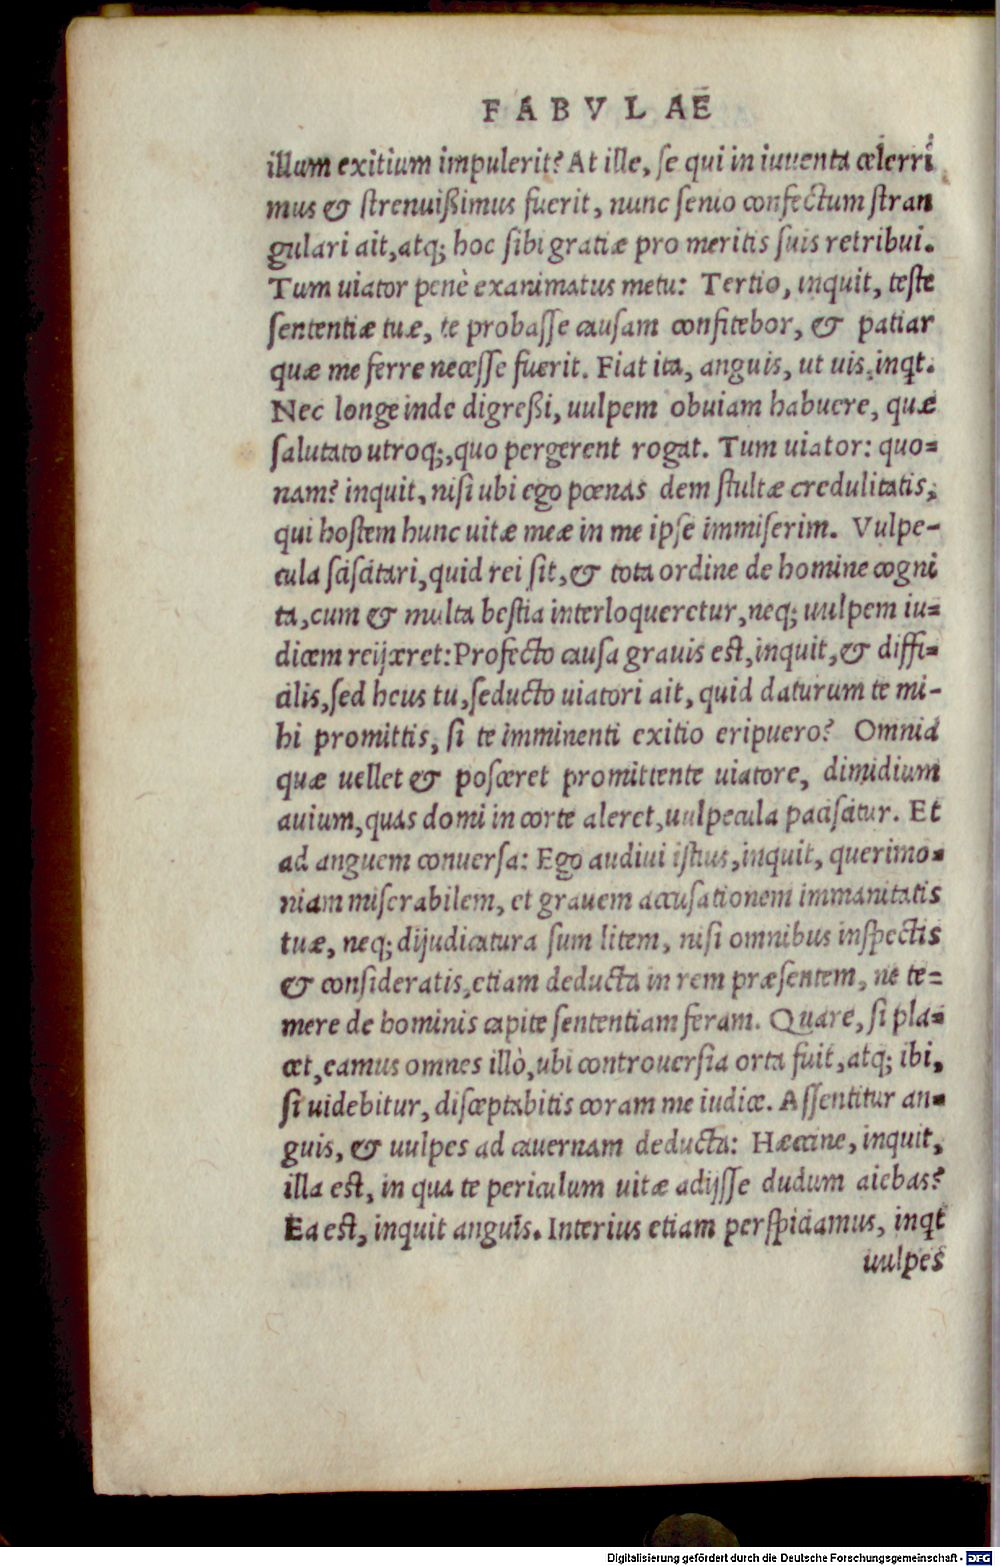 FABVLAE
illum exitium impulerit? At ille, se qui in iuuenta celerri
mus & strenuißimus fuerit, nunc senio confectum stran
gulari ait, atq; hoc sibi gratiæ pro meritis suis retribui.
Tum uiator penè exanimatus metu: Tertio, inquit, teste
sententiæ tuæ, te probasse causam confitebor, & patiar
quæ me ferre necesse fuerit. Fiat ita, anguis, ut uis, inqt.
Nec longe inde digreßi, uulpem obuiam habuere, quæ
salutato utroq;, quo pergerent rogat. Tum uiator: quo=
nam? inquit, nisi ubi ego pœnas dem stultæ credulitatis,
qui hostem hunc uitæ meæ in me ipse immiserim. Vulpe-
cula scisitari, quid rei sit, & tota ordine de homine cogni
ta, cum & multa bestia interloqueretur, neq; uulpem iu=
dicem reijceret: Profecto causa grauis est, inquit, & diffi=
cilis, sed heus tu, seducto uiatori ait, quid daturum te mi-
hi promittis, si te imminenti exitio eripuero? Omnia
quæ uellet & posceret promittente uiatore, dimidium
auium, quas domi in corte aleret, uulpecula paciscitur. Et
ad anguem conuersa: Ego audiui istius, inquit, querimo=
niam miserabilem, et grauem accusationem immanitatis
tuæ, neq; dijudicatura sum litem, nisi omnibus inspectis
& consideratis, etiam deducta in rem præsentem, ne te=
mere de hominis capite sententiam feram. Quare, si pla=
cet, eamus omnes illò, ubi controuersia orta fuit, atq; ibi,
si uidebitur, disceptabitis coram me iudice. Assentitur an=
guis, & uulpes ad cauernam deducta: Hæccine, inquit,
illa est, in qua te periculum uitæ adijsse dudum aiebas?
Ea est, inquit anguis. Interius etiam perspiciamus, inqt
uulpes
Digitalisierung gefördert durch die Deutsche Forschungsgemeinschaft - DFG